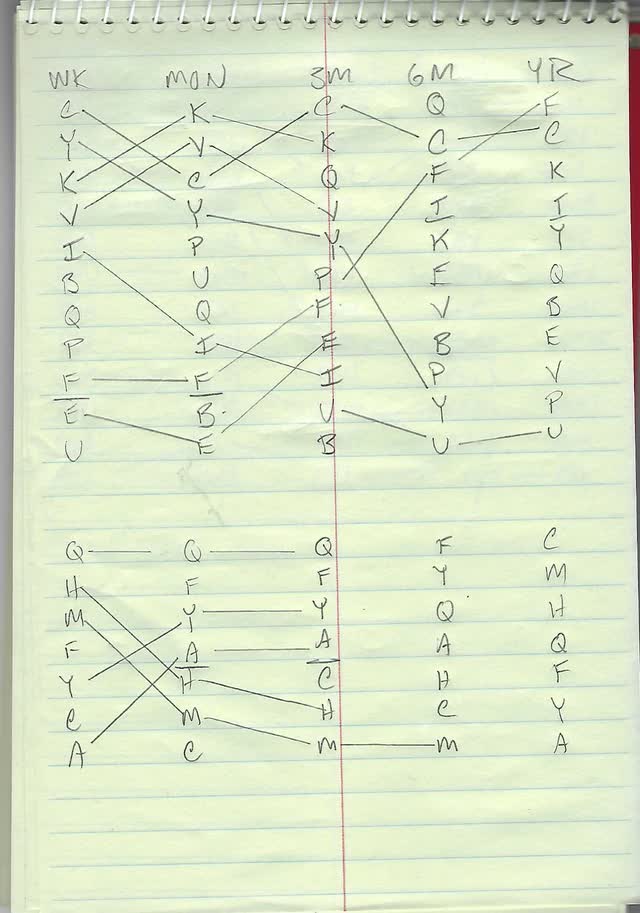 WK MON 3M 6M YR
C K C Q F
Y V K C C
K C Q F K
V Y V I I
I P Y K Y
B U P E Q
Q Q F V B
P I E B E
F F I P V
E B U Y P
U E B U U
Q Q Q F C
H F F Y M
M Y Y Q H
F A A A Q
Y H C H F
C M H C Y
A C M M A